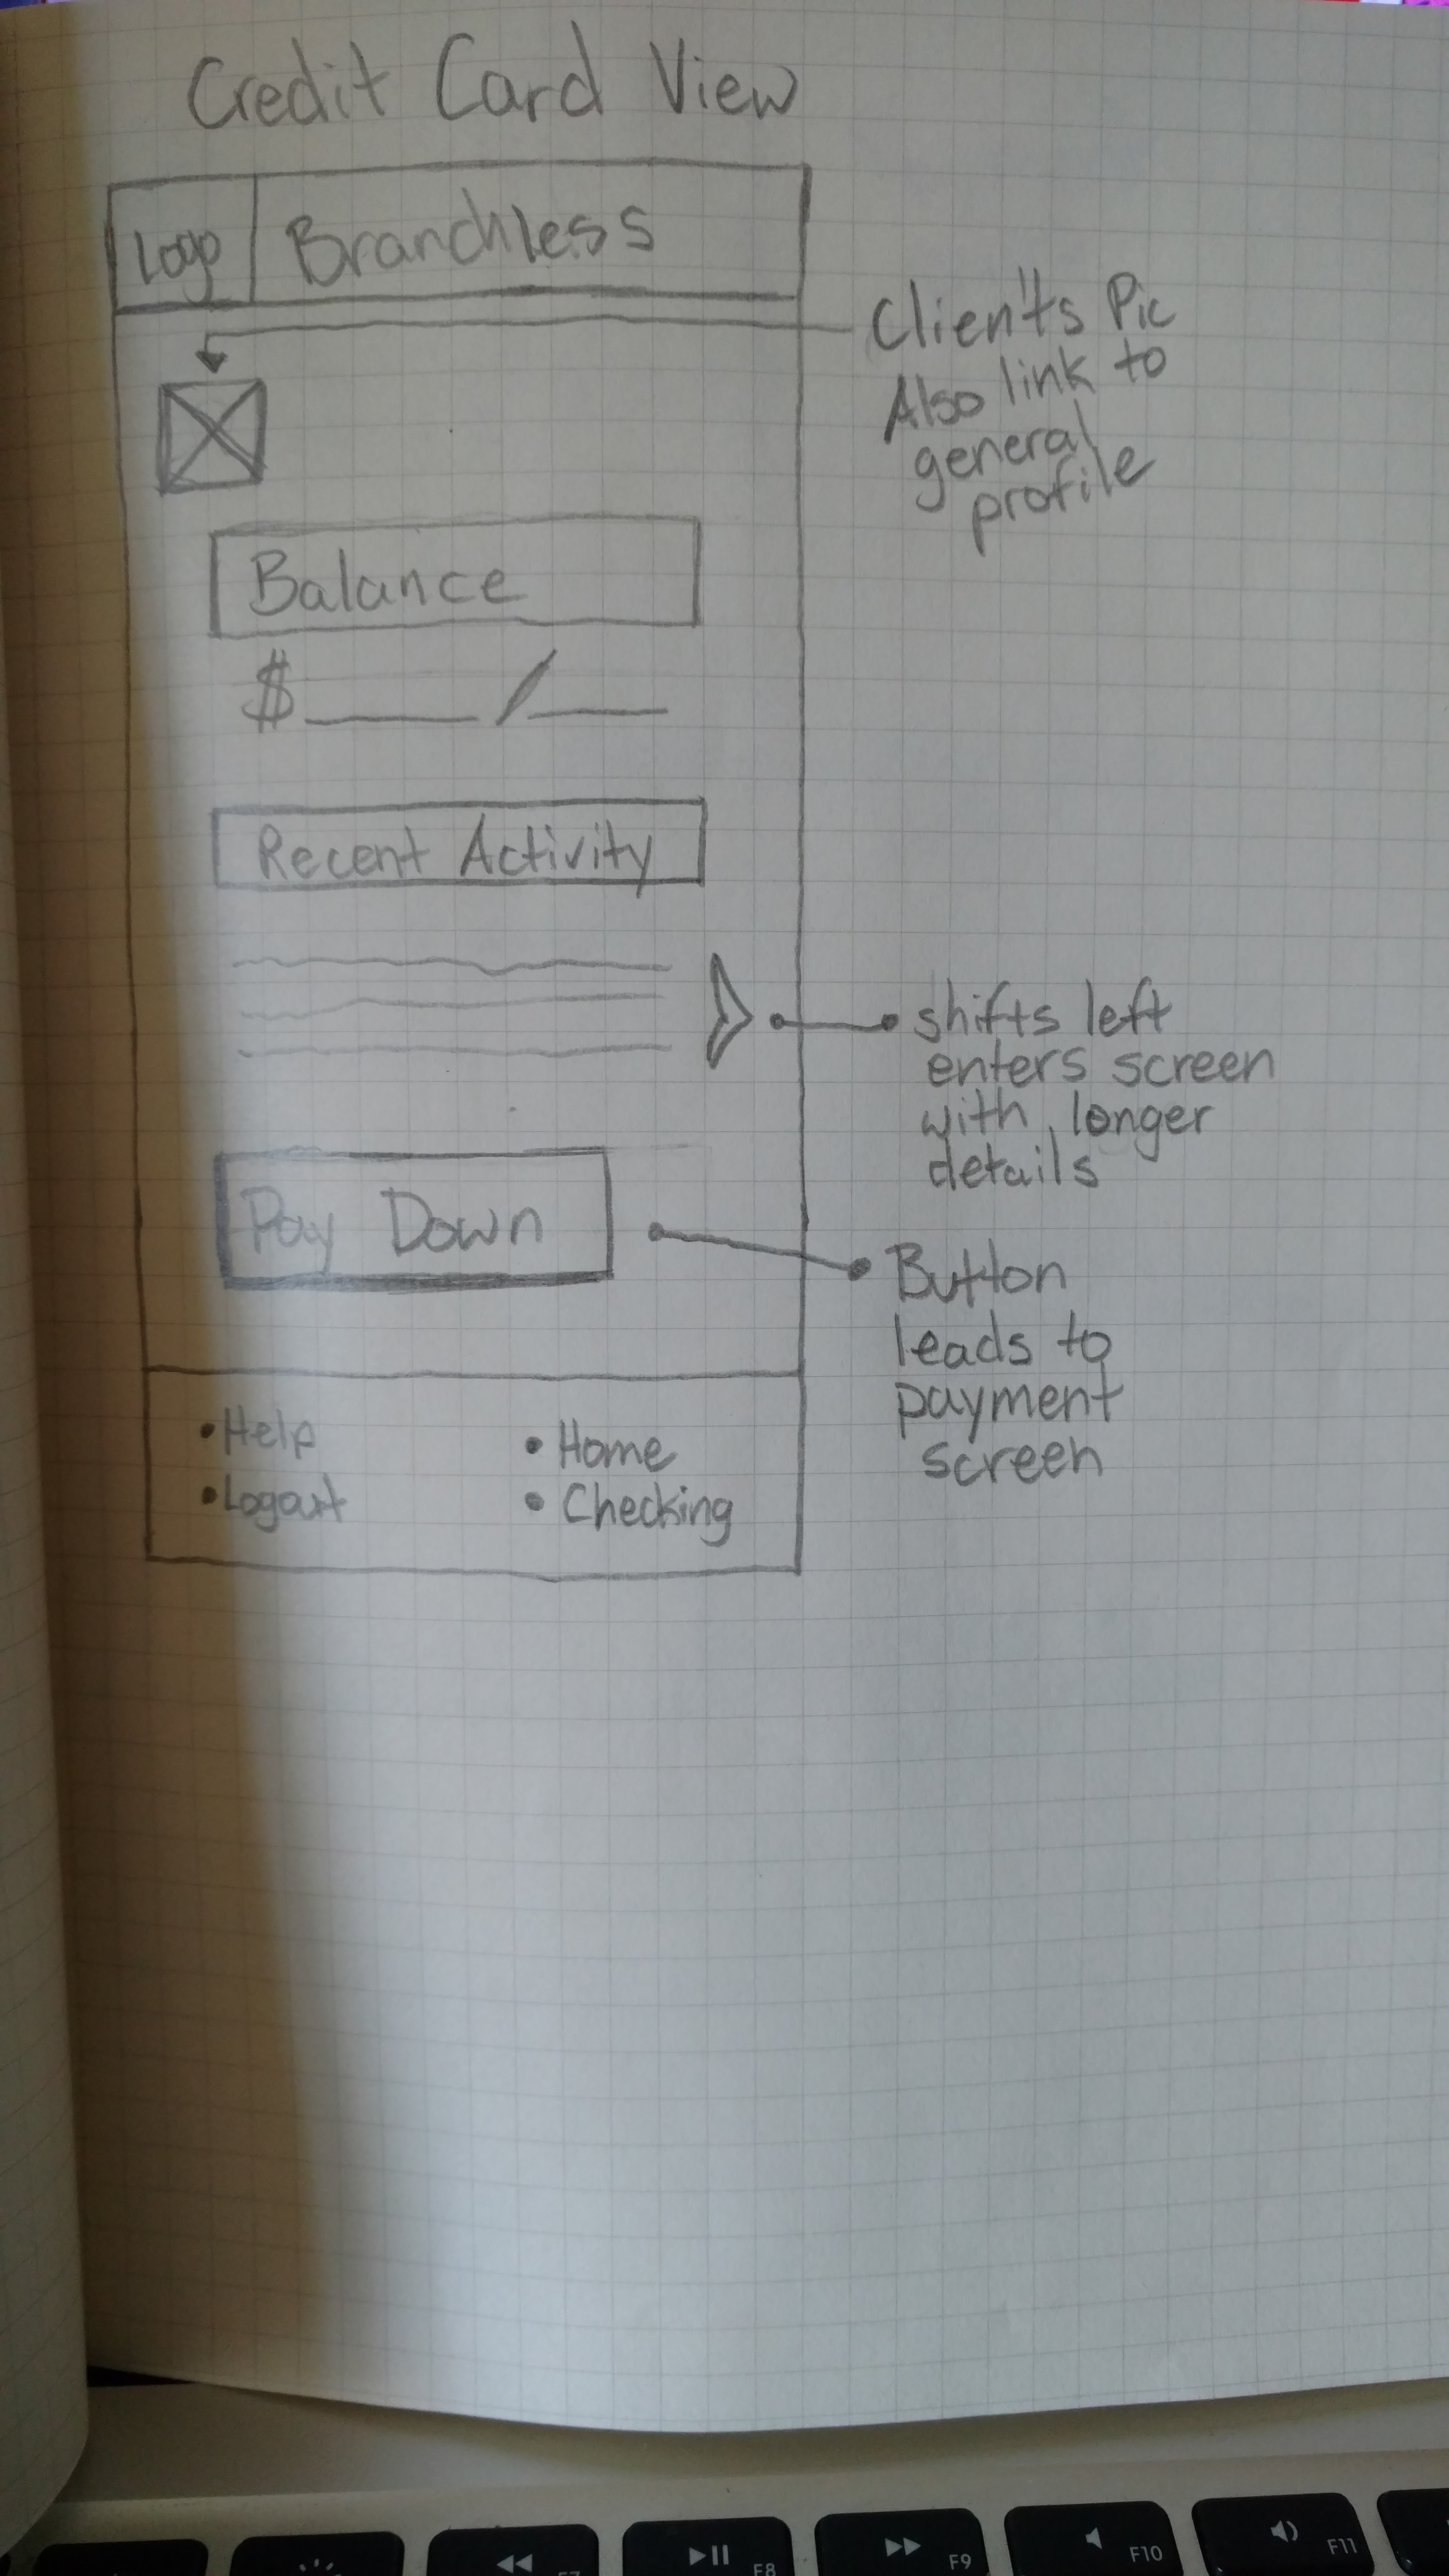 Credit Card View
Logo Branchless
Client's Pic
Also link to
general
profile
Balance
$ /
Recent Activity
shifts left
enters screen
with longer
details
Pay Down
Button
leads to
payment
screen
• Help
• Logout
• Home
• Checking
F7
F8
F9
F10
F11